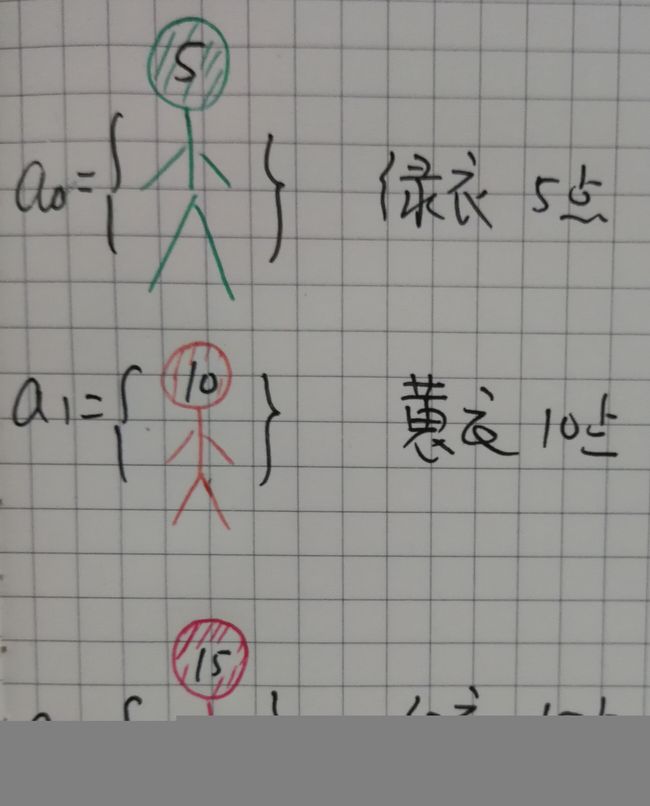 5
a₀={ } 绿衣 5点
10
a₁={ } 黄衣 10点
15